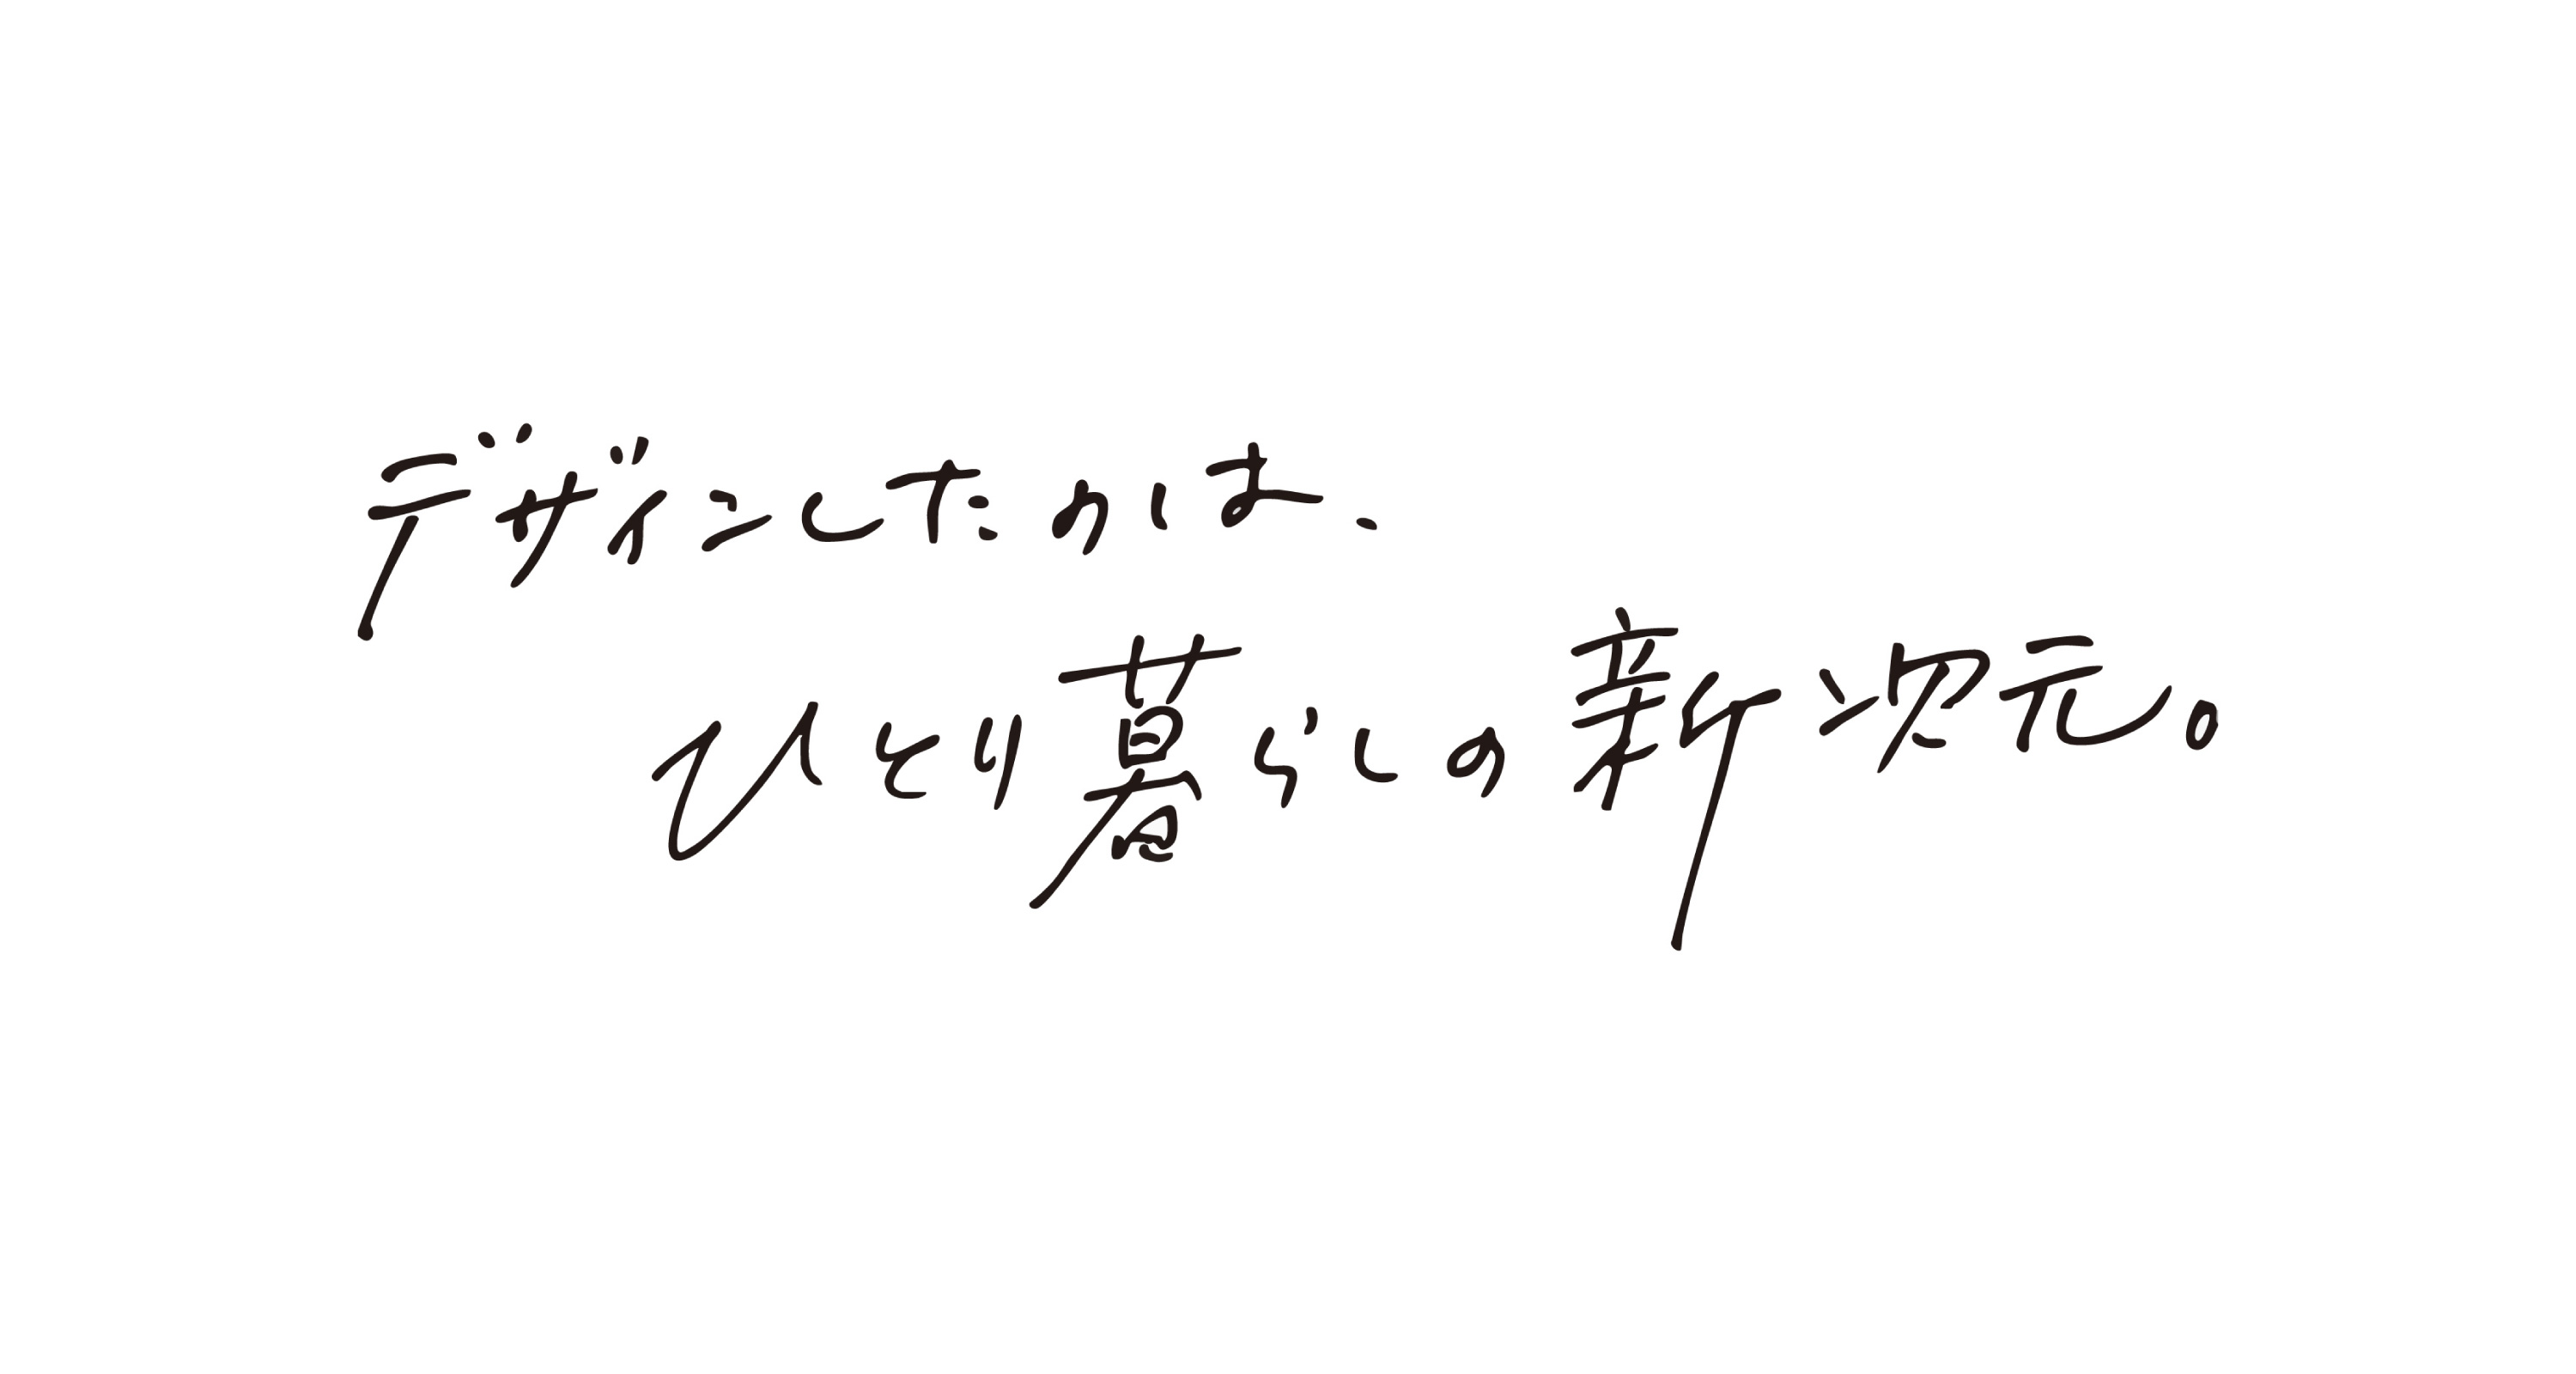 デザインしたのは、
ひとり暮らしの新次元。